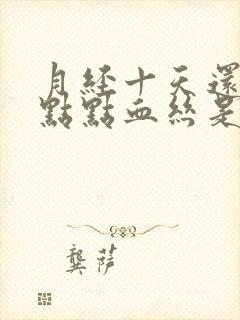 月經十天還
點點血絲是
龔萍